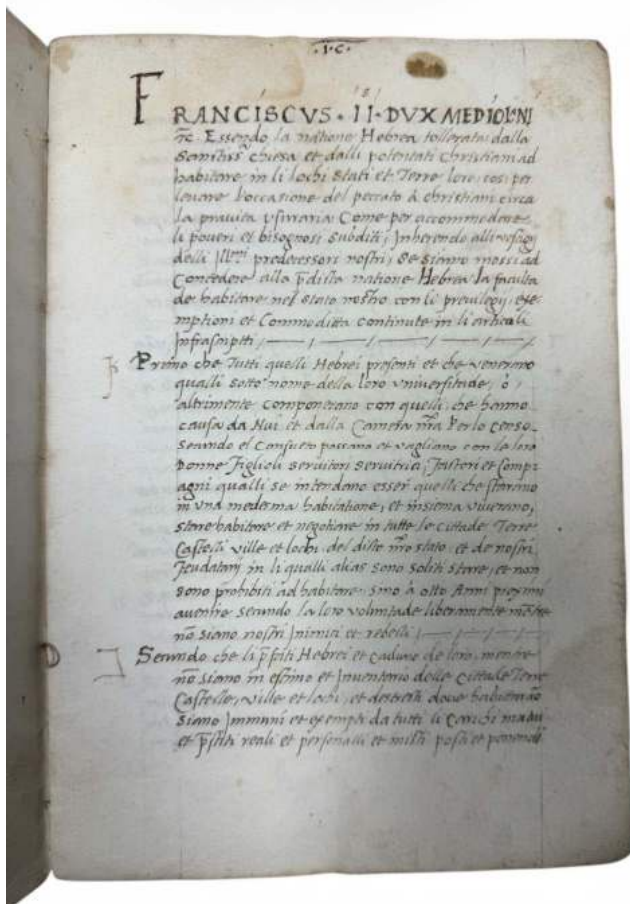 .I.C.
FRANCISCVS . II . DVX MEDIOLNI
Essendo la natione Hebrea tollerata dalla
chiesa et dalli potentati Christiani ad
habitare in li lochi stati et Terre loro, cosi per
levare l'occasione del peccato à christiani circa
la pravita vsuraria Come per accommodare
li poveri et bisognosi subditi, Inherendo alli
delli predecessori nostri, Se siamo mossi ad
Concedere alla natione Hebrea la faculta
de habitare nel stato nostro con li previlegij,
emptioni et Commodita continute in li articuli
Infrascritti
Primo che Tutti quelli Hebrei presenti et che venerano
qualli sotto nome della loro vniversitade, ò,
altrimente componerano con quelli che hanno
causa da Nui et dalla Camera nra Per lo censo
secundo el Consueto possano et vagliano con le loro
Donne figlioli servitori servitrici, fattori et Comp
agni qualli se intendano esser quelli che starano
in vna medesma habitatione, et insiema viverano,
stare habitare et negotiare in tutte le cittade Terre
Castelli ville et lochi del ditto nro stato et de nostri
feudatarij in li qualli alias sono soliti stare, et non
sono prohibiti ad habitare, sino à otto Anni proximi
avenire secundo la loro voluntade liberamente mentre
nõ siano nostri Inimici et rebelli
Secundo che li Hebrei et caduno de loro, mentre
nõ siano in estimo et Inventario delle cittade Terre
Castelle, ville et lochi, et destretti dove habitarão
siano Immuni et exempti da tutti li Carichi
et reali et personalli et misti posti et